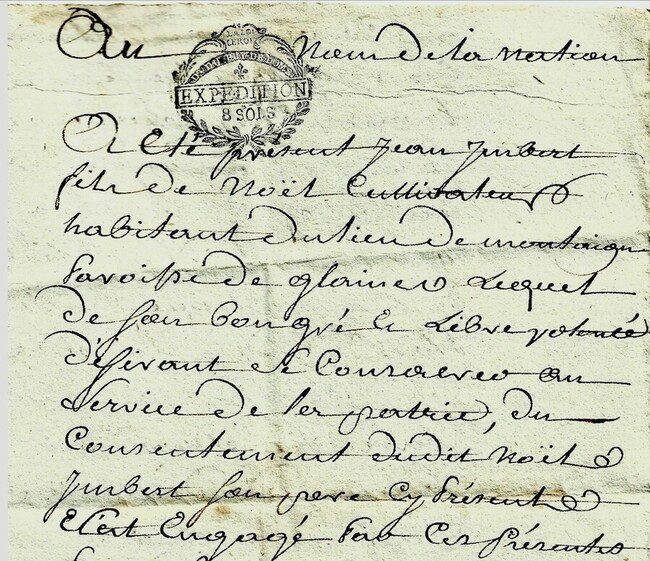 Au Nom de la nation
LA LOI
LE ROI
EXPEDITION
8 SOLS
A Eté présent Jean Jmbert
fils de Noël Cultivateur
habitant du lieu de montaigu
paroisse de glaine Lequel
de son bon gré Et Libre volonté
désirant se Consacrer au
service de la patrie, du
Consentement dudit Noël
Jmbert son pere Cy présent
S'est Engagé par Ces présentes